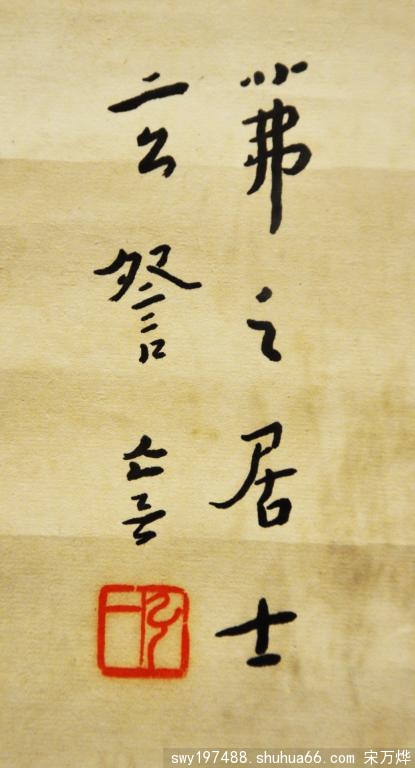 茀之居士
玄詧
swy197488.shuhua66.com 宋万烨